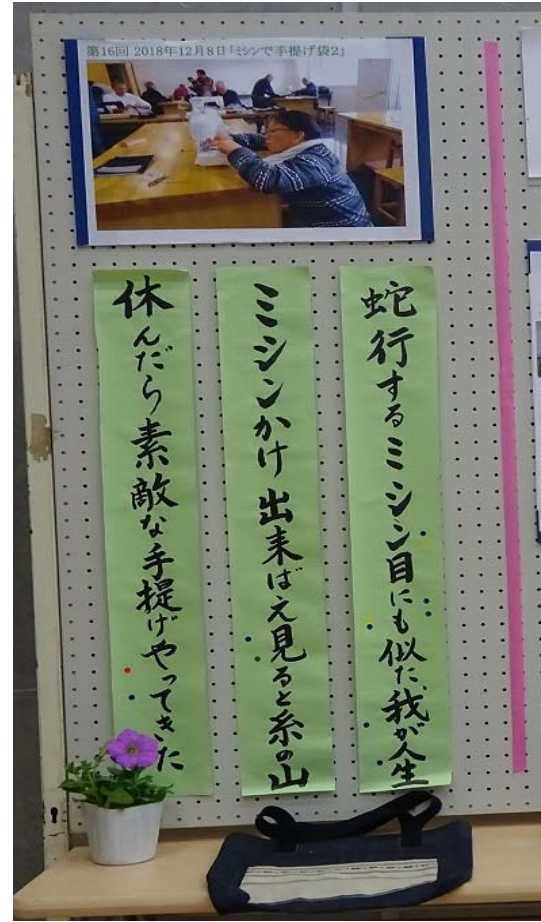 第16回 2018年12月8日「ミシンで手提げ袋2」
蛇行するミシン目にも似た我が人生
ミシンかけ出来ばえ見ると糸の山
休んだら素敵な手提げやってきた